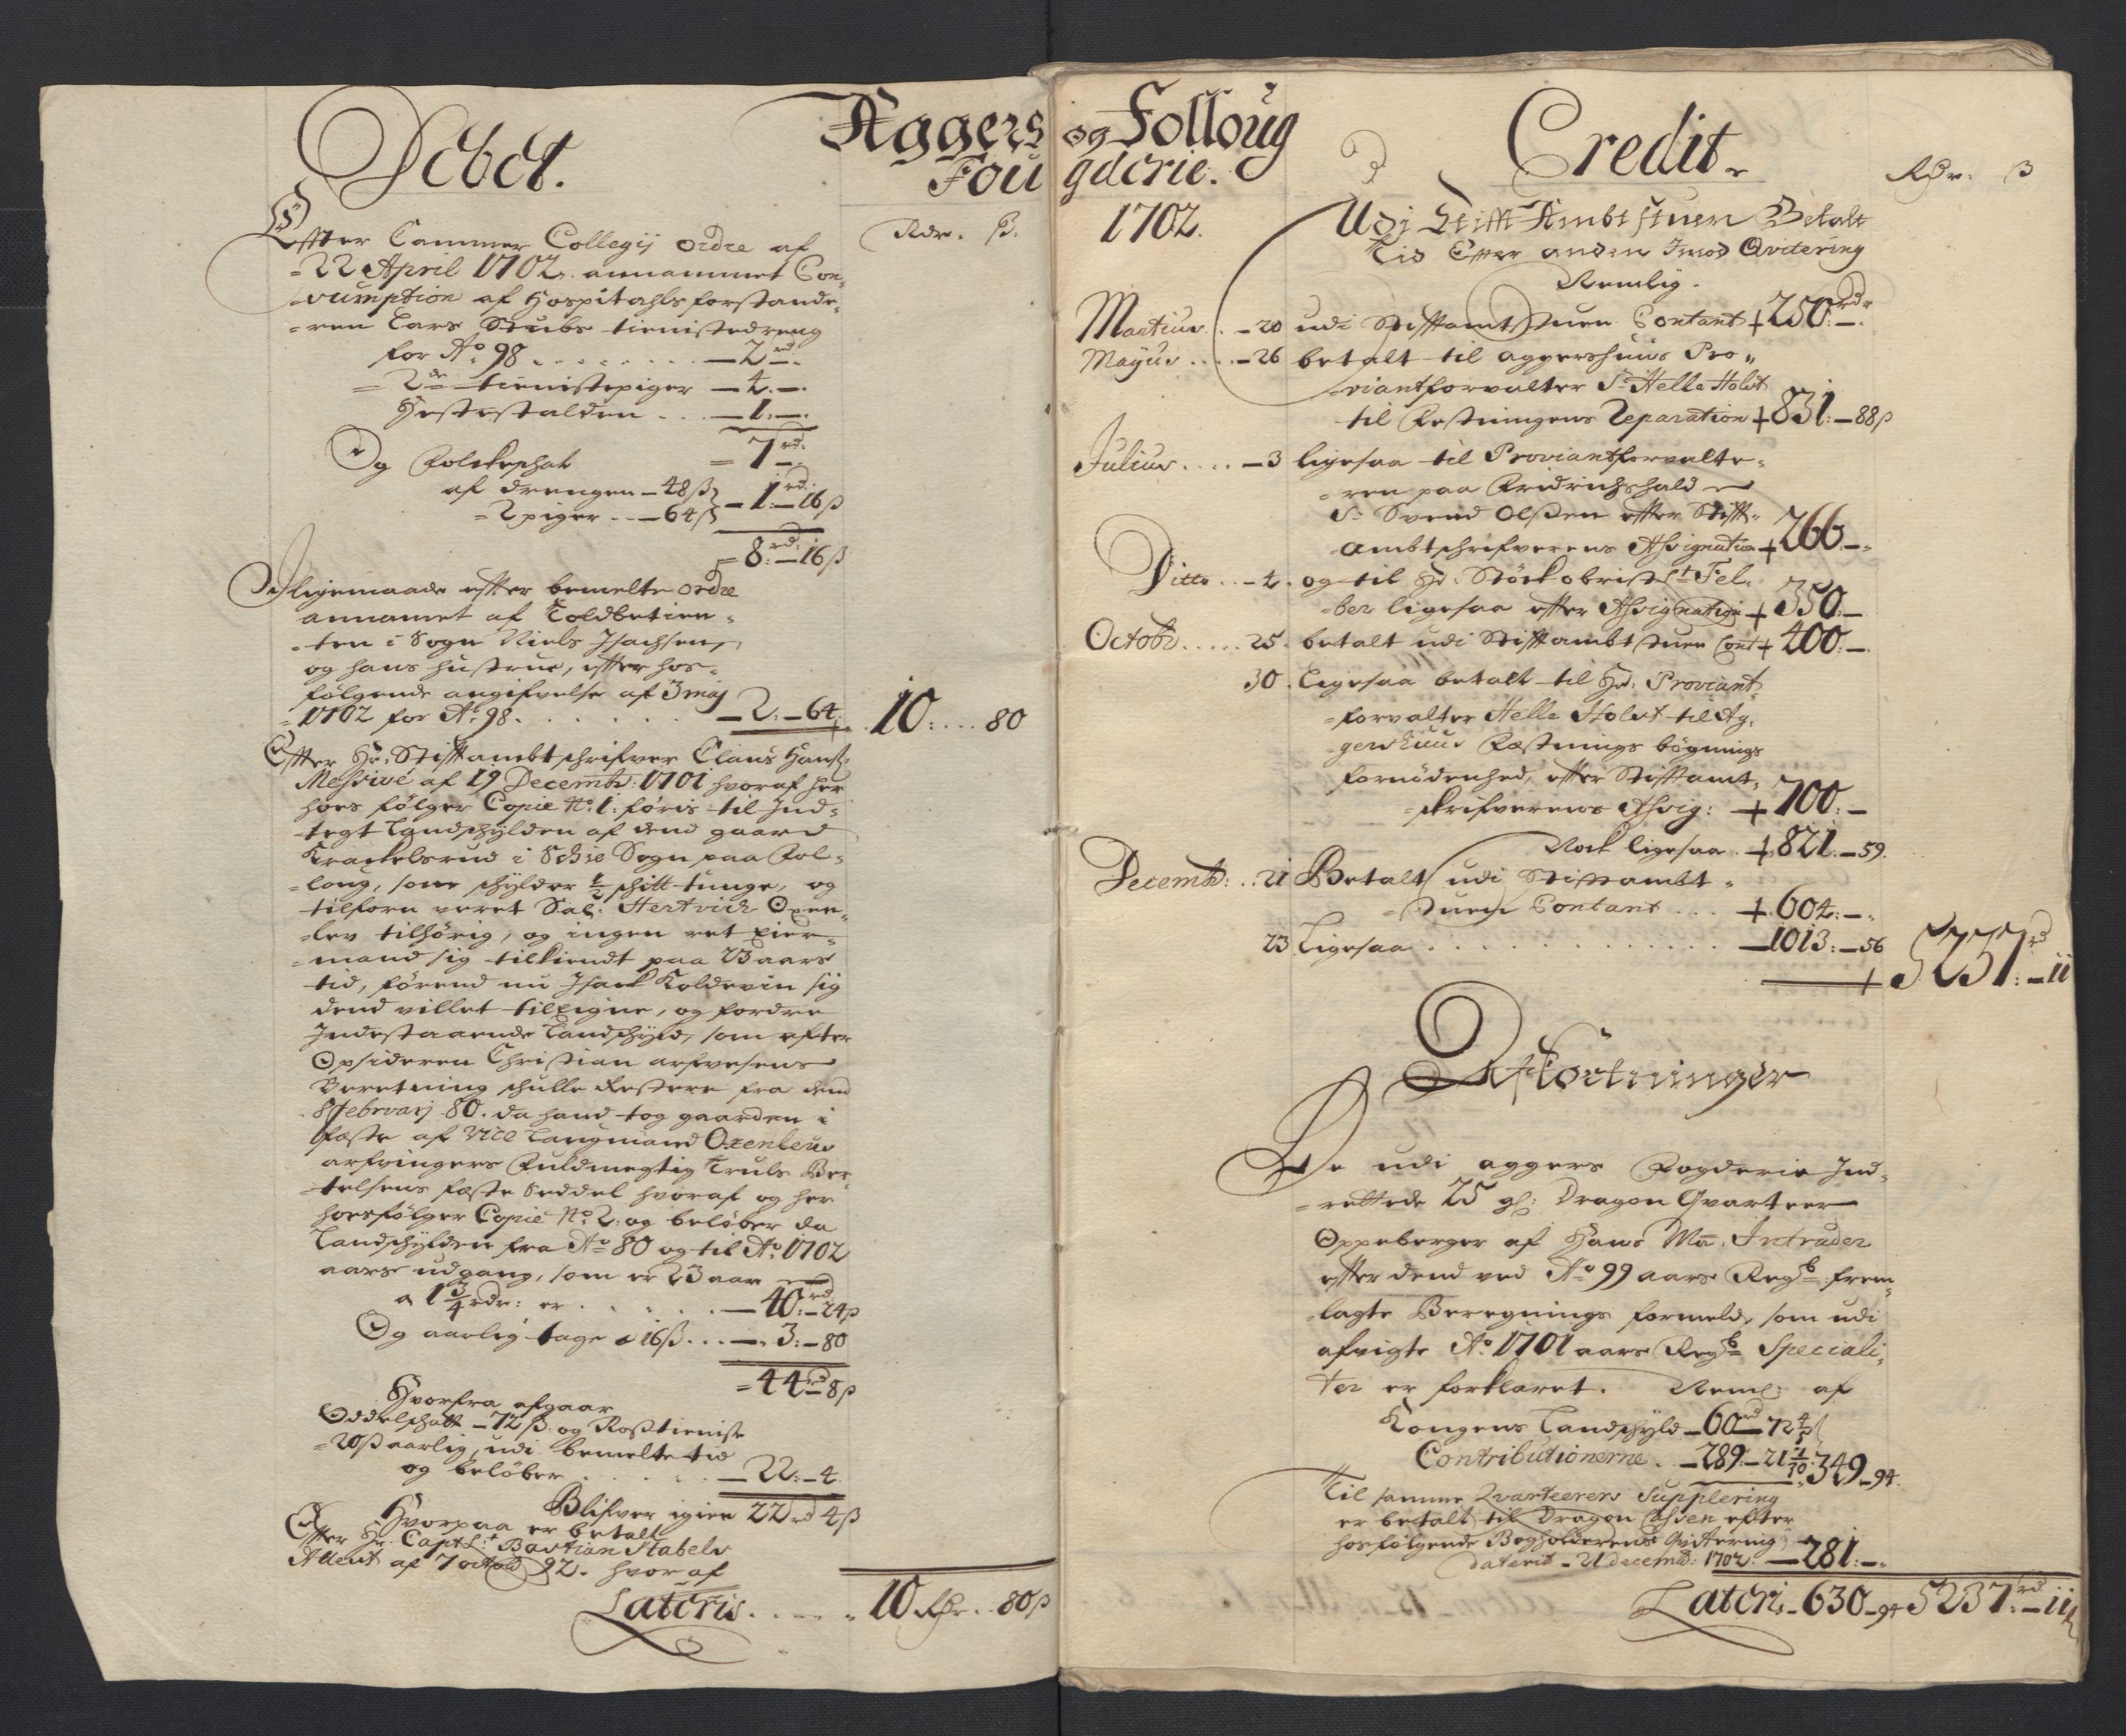 Debet.
Aggers og Folloug
Fougderie.
1702.
Rdr. ß.
Effter Cammer Collegij ordre af
22 April 1702. annammet Con-
sumption af Hospitahls forstande-
ren Lars Stubs tienistedreng
for Aº 98 . . . . . . . — 2 rd —
2de tienistepiger — 4. —.
Hestestalden . . . — 1. —.
= 7 rd: —
Og Folckeskat
af drengen — 48 ß
2 piger . . — 64 ß — 1 rd: — 16 ß
= 8 rd: — 16 ß
Iligemaade effter bemelte ordre
annamet af Toldbetien-
ten i Sogn Niels Jsachsen,
og hans hustrue, effter hos-
følgende angifvelse af 3 maj
1702 for Aº 98. . . . . . — 2: — 64: 10: . . . 80
Effter Hr: Stifftambtschrifver Claus Hansß:
Missive af 19 Decembr: 1701 hvoraf her
hoes følger Copie Nº 1: føris til Ind-
tegt Landschylden af dend gaard
Krackelsrud i Schie Sogn paa Fol-
loug, som schylder ½ schitt tunge, og
tilforn veret Sal: Hertvich Oxen-
lev tilhørig, og ingen ret Eier-
mand sig tilkiendt paa 23 aars
tid, førend nu Jsack Koldevin sig
dend villet tilEigne, og fordre
Indestaaende Landschyld, som efter
Opsideren Christian arfvesens
Beretning schulle Restere fra dend
8 Febrvarj 80. da hand tog gaarden i
fæste af Vice Laugmand Oxenleus
arfvingers Fuldmegtig Truls Ber-
telsens fæste Seddel hvoraf og her
hoesfølger Copie Nº 2: og beløber da
Landschylden fra Aº 80 og til Aº 1702
aars udgang, som er 23 aar
a 1¾ rdr: er . . . . . — 40 rd: — 24 ß
Og aarlig tage a 16 ß . . . — 3: — 80
= 44 rd 8 ß
Hvorfra afgaar
Oddelschatt — 72 ß. og Rostieniste
20 ß aarlig, udi bemelte tid
og beløber . . . . . — 22: — 4.
Blifver igien 22 rd 4 ß
Hvorpaa er betalt
Effter Hr: Capt Lt Bastian Stabels
Attest af 7 octobr 92. hvor af
Lateris . . . . . 10 Rdr. . 80 ß
Credit.
Rdr. ß
Udj Stifft Ambtstuen Betalt
Tid Effter anden Jmod Qvitering
Nemlig.
Martius . . — 20 udi Stifftamtstuen Contant + 250: rdr —.
Mayus . . . — 26 betalt til aggershuus Pro-
viantforvalter Sr Helle Holst
til Festningens Reparation + 831: — 88 ß
Julius . . . . — 3 ligesaa til Proviantforvalte-
ren paa Fridrichshald
Sr Svend Olßen effter Stifft-
ambtschrifverens Assignation + 266. —
Ditto . . — 4. og til Hr: Stöckobrist Lt Fel-
ber ligesaa effter Assignation + 350: —
Octobr . . . . . 25. betalt udi Stifftambtstuen Cont + 400: —.
30. Ligesaa betalt til Hr: Proviant-
forvalter Helle Holst til Ag-
gershuus Fæstnings bögnings
fornödenhed, effter Stifftamt-
skrifverens Assig: + 700: —
Nock ligesaa . + 821: — 59.
Decembr: . . 21 Betalt udi Stifftambt-
stuen Contant . . . + 604: —.
23. Ligesaa . . . . . . . . . . — 1013: — 56
+ 5237: rd — 11
Afkortninger
De udi aggers Fogderie Ind-
rettede 25 gl: Dragon Qvarteer
Oppeberger af Hans Ma: Intrader
effter dend ved Aº 99 aars Regsb: frem-
lagte Beregnings formeld, som udi
afvigte Aº 1701 aars Regsb: Speciali-
ter er forklaret. Neml: af
Kongens Landschyld — 60 rd — 72 4/5 ß
Contributionerne . — 289: — 21 1/10: 349 — 94.
Til samme Qvarteerers Supplering
er betalt til Dragon Cassen efter
hosfølgende Bogholderens Qvittering
daterit — 21 decembr: 1702. — 281: —.
Lateris — 630 — 94 5237: rd — 11 ß